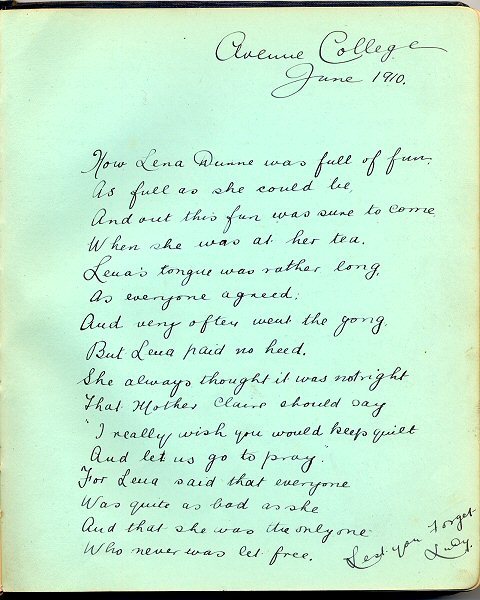 Avenue College
June 1910.
Now Lena Dunne was full of fun.
As full as she could be,
And out this fun was sure to come
When she was at her tea.
Lena's tongue was rather long,
As everyone agreed;
And very often went the gong,
But Lena paid no heed.
She always thought it was not right
That Mother Claire should say
"I really wish you would keep quiet
And let us go to pray".
For Lena said that everyone
Was quite as bad as she
And that she was the only one
Who never was let free.
Lest you Forget
Judy.